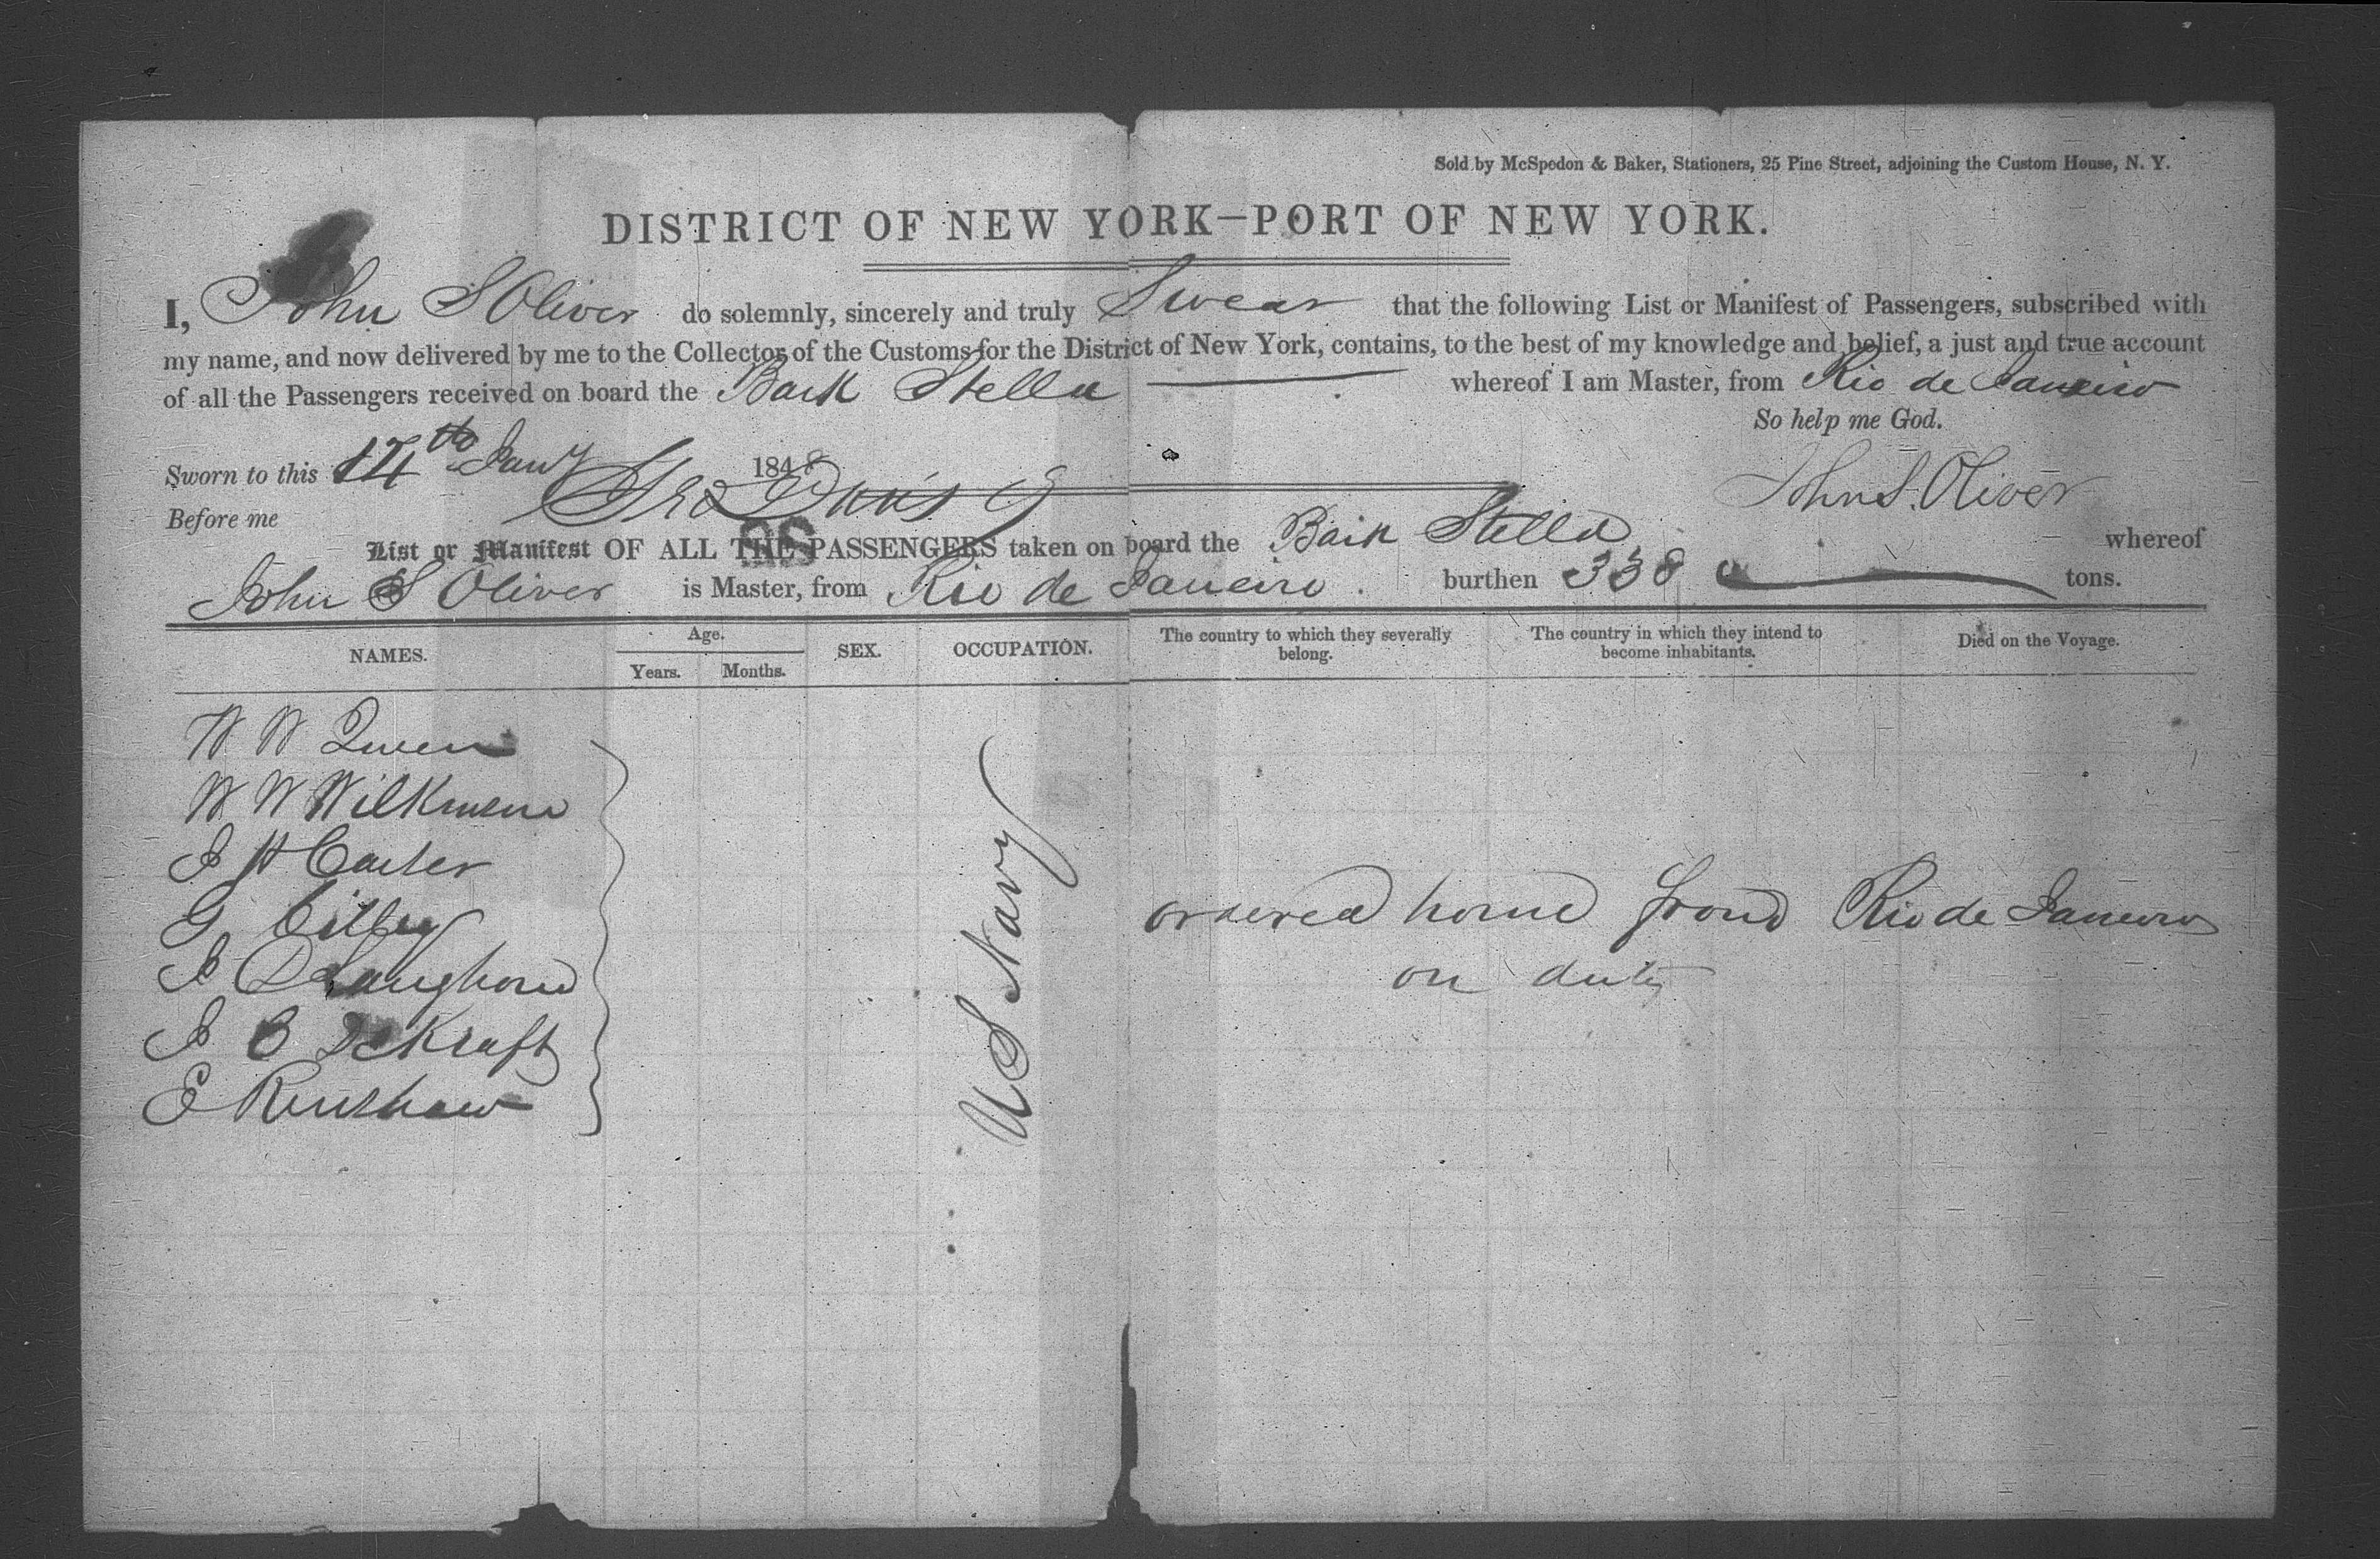 Sold by McSpedon & Baker, Stationers, 25 Pine Street, adjoining the Custom House, N. Y.
DISTRICT OF NEW YORK—PORT OF NEW YORK.
I, John S Oliver do solemnly, sincerely and truly Swear that the following List or Manifest of Passengers, subscribed with
my name, and now delivered by me to the Collector of the Customs for the District of New York, contains, to the best of my knowledge and belief, a just and true account
of all the Passengers received on board the Bark Stella whereof I am Master, from Rio de Janeiro
So help me God.
Sworn to this 14th Jany 1848
John S. Oliver
Before me
List or Manifest OF ALL THE PASSENGERS taken on board the Bark Stella whereof
John S Oliver is Master, from Rio de Janeiro. burthen 338 tons.
NAMES. Age. Years. Months. SEX. OCCUPATION. The country to which they severally belong. The country in which they intend to become inhabitants. Died on the Voyage.
W W Queen
W W Wilkinson
J H Carter
G Cilley
J D Langhorn
J C DeKraft
E Renshaw
U S Navy
ordered home from Rio de Janeiro
on duty